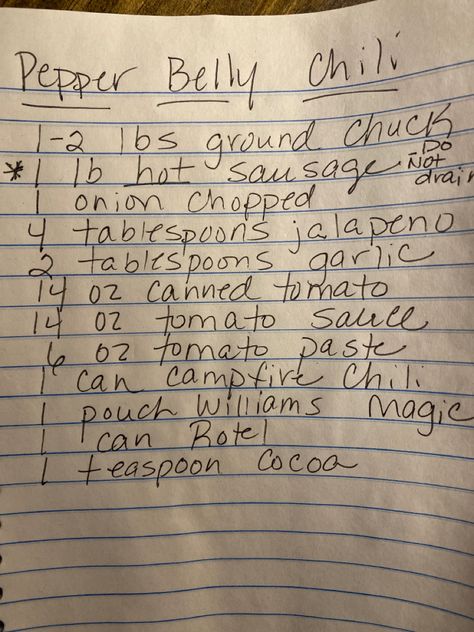 Pepper Belly Chili
1-2 lbs ground chuck
* 1 lb hot sausage - Do Not drain
1 onion chopped
4 tablespoons jalapeno
2 tablespoons garlic
14 oz canned tomato
14 oz tomato sauce
6 oz tomato paste
1 can campfire chili
1 pouch Williams Magic
1 can Rotel
1 teaspoon cocoa